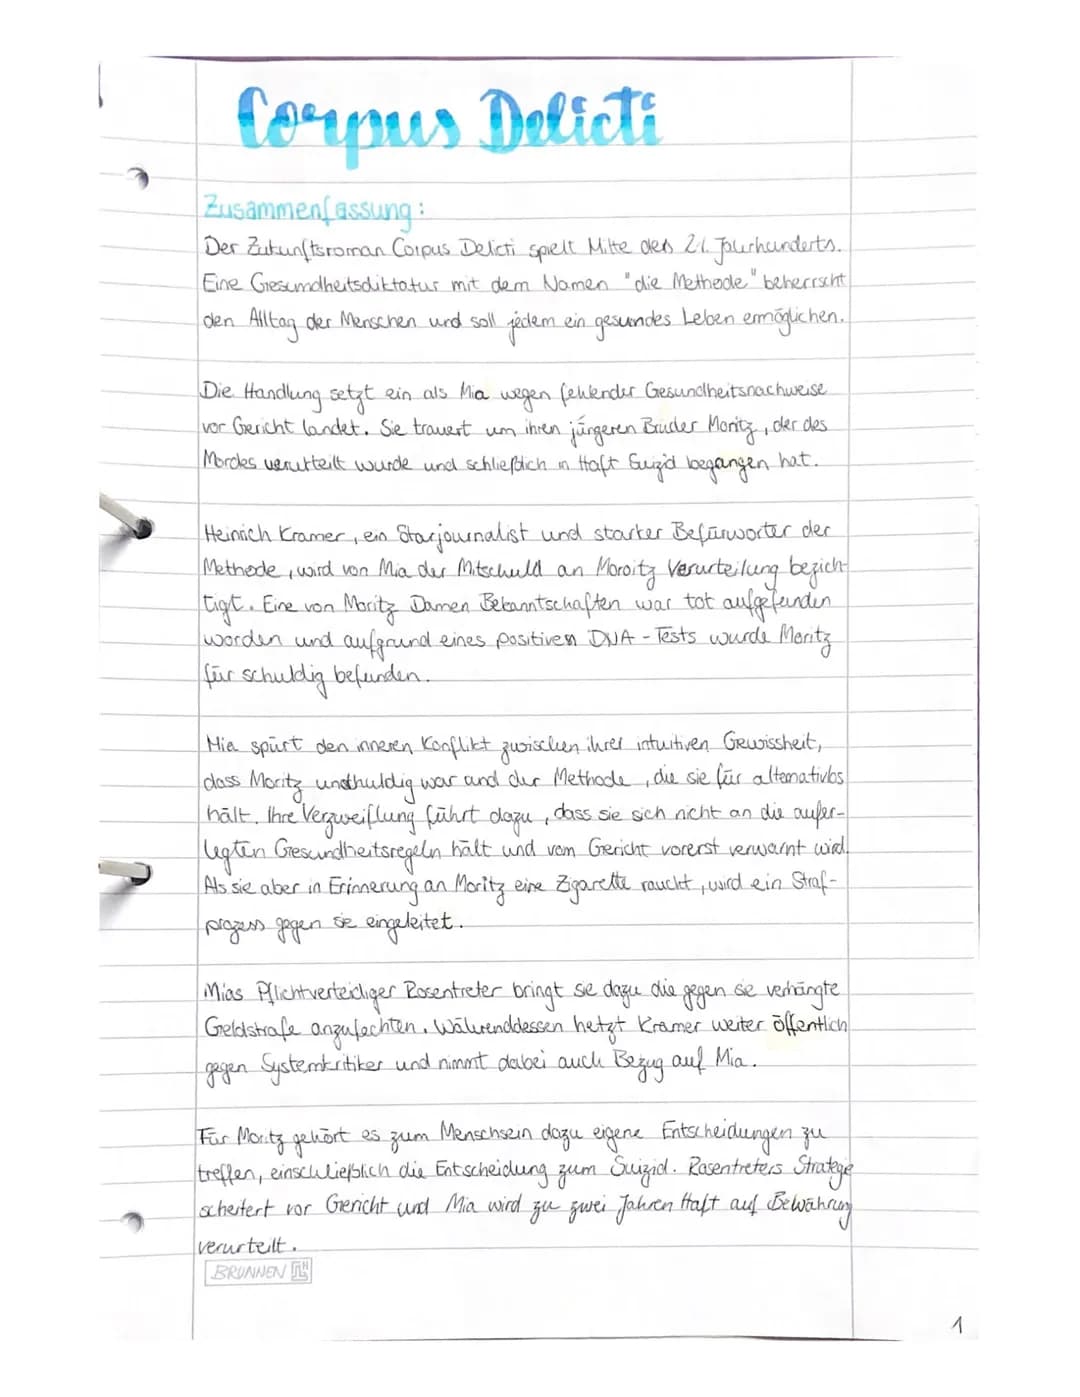 Corpus Delicti
Zusammenfassung:
Der Zukunftsroman Corpus Delicti spielt Mitte des 21. Jahrhunderts.
Eine Gesundheitsdiktatur mit dem Namen "die Methode" beherrscht
den Alltag der Menschen und soll jedem ein gesundes Leben ermöglichen.
Die Handlung setzt ein als Mia wegen fehlender Gesundheitsnachweise
vor Gericht landet. Sie trauert um ihren jüngeren Bruder Moritz, der des
Mordes verurteilt wurde und schließlich in Haft Suizid begangen hat.
Heinrich Kramer, ein Starjournalist und starker Befürworter der
Methode, wird von Mia der Mitschuld an Moroitz Verurteilung bezich-
tigt. Eine von Moritz Damen Bekanntschaften war tot aufgefunden
worden und aufgrund eines positiven DNA-Tests wurde Moritz
für schuldig befunden.
Mia spürt den inneren Konflikt zwischen ihrer intuitiven Gewissheit,
dass Moritz unschuldig war und der Methode, die sie für alternativlos
hält. Ihre Verzweiflung führt dazu, dass sie sich nicht an die aufer-
legten Gesundheitsregeln hält und vom Gericht vorerst verwarnt wird.
Als sie aber in Erinnerung an Moritz eine Zigarette raucht, wird ein Straf-
prozess gegen sie eingeleitet.
Mias Pflichtverteidiger Rosentreter bringt sie dazu die gegen sie verhängte
Geldstrafe anzufechten. Währenddessen hetzt Kramer weiter öffentlich
gegen Systemkritiker und nimmt dabei auch Bezug auf Mia.
Für Moritz gehört es zum Menschsein dazu eigene Entscheidungen zu
treffen, einschließlich die Entscheidung zum Suizid. Rosentreters Strategie
scheitert vor Gericht und Mia wird zu zwei Jahren Haft auf Bewährung
verurteilt.
BRUNNEN
1